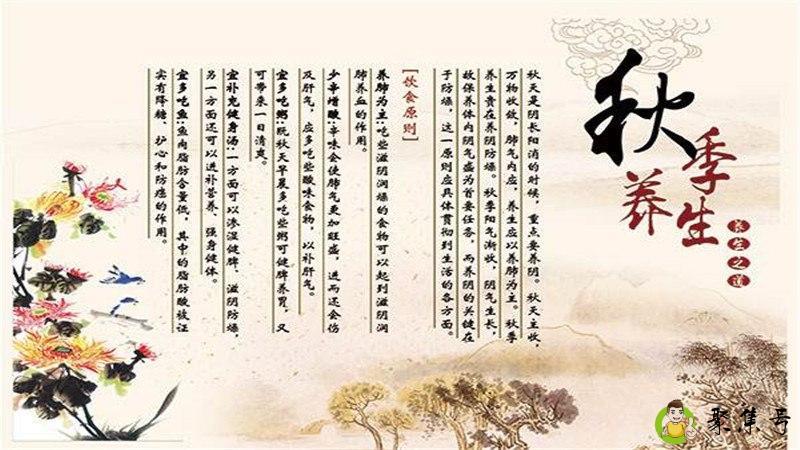 秋季养生
养生之道
秋天是阴长阳消的时候，重点要养阴。秋天主收，
万物收敛，肺气内应，养生应以养肺为主。秋季
养生贵在养阴防燥。秋季阳气渐收，阴气生长，
故保养体内阴气盛为首要任务，而养阴的关键在
于防燥，这一原则应具体贯彻到生活的各方面。
[饮食原则]
养肺为主:吃些滋阴润燥的食物可以起到滋阴润
肺养血的作用。
少辛增酸:辛味会使肺气更加旺盛，进而还会伤
及肝气，应多吃些酸味食物，以补肝气。
宜多吃粥:既秋天早晨多吃些粥可健脾养胃，又
可带来一日清爽。
宜补充健身汤:一方面可以渗湿健脾、滋阴防燥，
另一方面还可以进补营养、强身健体。
宜多吃鱼:鱼肉脂肪含量低，其中的脂肪酸被证
实有降糖、护心和防癌的作用。
聚集号